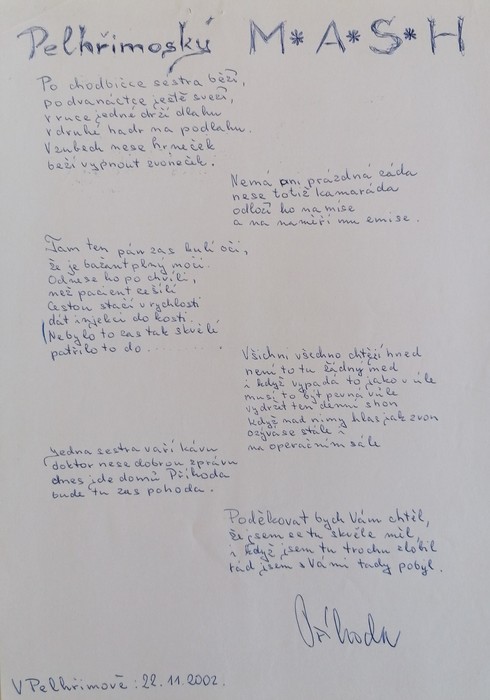 Pelhřimoský M*A*S*H
Po chodbičce sestra běží,
po dvanáctce ještě svěží,
v ruce jedné drží dlahu
v druhé hadr na podlahu.
V zubech nese hrneček
běží vypnout zvoneček.
Nemá ani prázdná záda
nese totiž kamaráda
odloží ho na míse
a na neměří mu emise.
Tam ten pán zas kulí oči,
že je bažant plný moči.
Odnese ho po chvíli,
než pacient zešílí
Cestou stačí v rychlosti
dát injekci do kosti.
Nebylo to zas tak skvělé
patřilo to do ..........
Všichni všechno chtějí hned
není to tu žádný med
i když vypadá to jako v úle
musí to být pevná vůle
vydržet ten denní shon
když nad nimy hlas jak zvon
ozývá se stále
na operačním sále
Jedna sestra vaří kávu
doktor nese dobrou zprávu
dnes jde domů Příhoda
bude tu zas pohoda.
Poděkovat bych Vám chtěl,
že jsem se tu skvěle měl,
i když jsem tu trochu zlobil
rád jsem s Vámi tady pobyl.
Příhoda
V Pelhřimově: 22.11.2002.